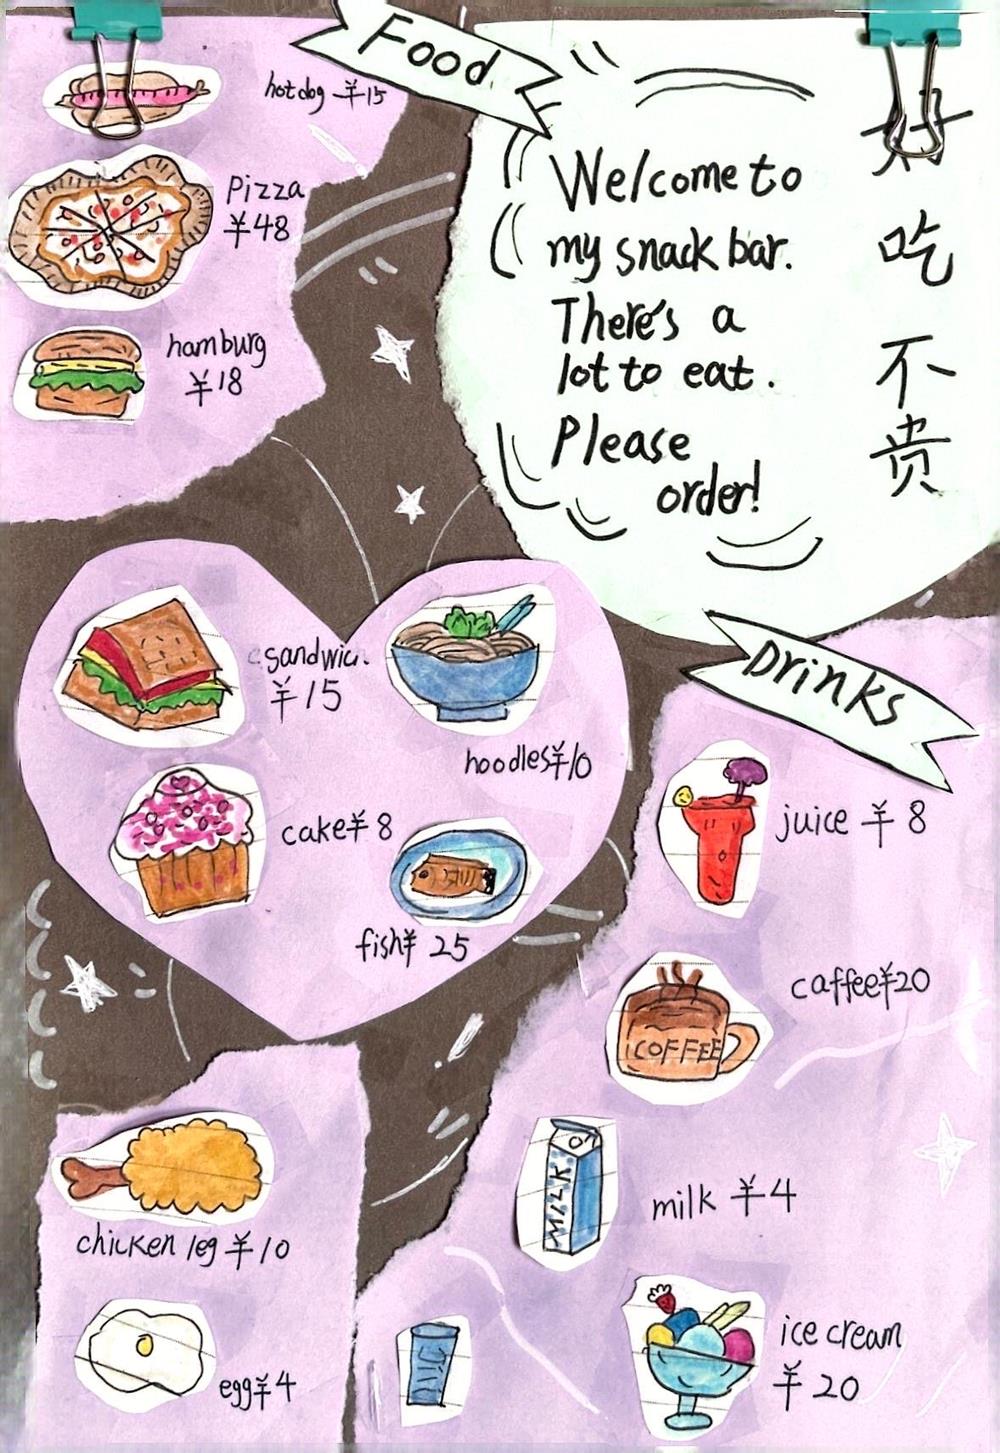 Food
hotdog ¥15
Pizza
¥48
hamburg
¥18
Welcome to
my snack bar.
There's a
lot to eat.
Please
order!
好
吃
不
贵
sandwic.
¥15
noodles¥10
cake¥8
fish¥ 25
Drinks
juice ¥8
caffee¥20
COFFEE
MILK
milk ¥4
chicken leg ¥10
egg¥4
ice cream
¥20